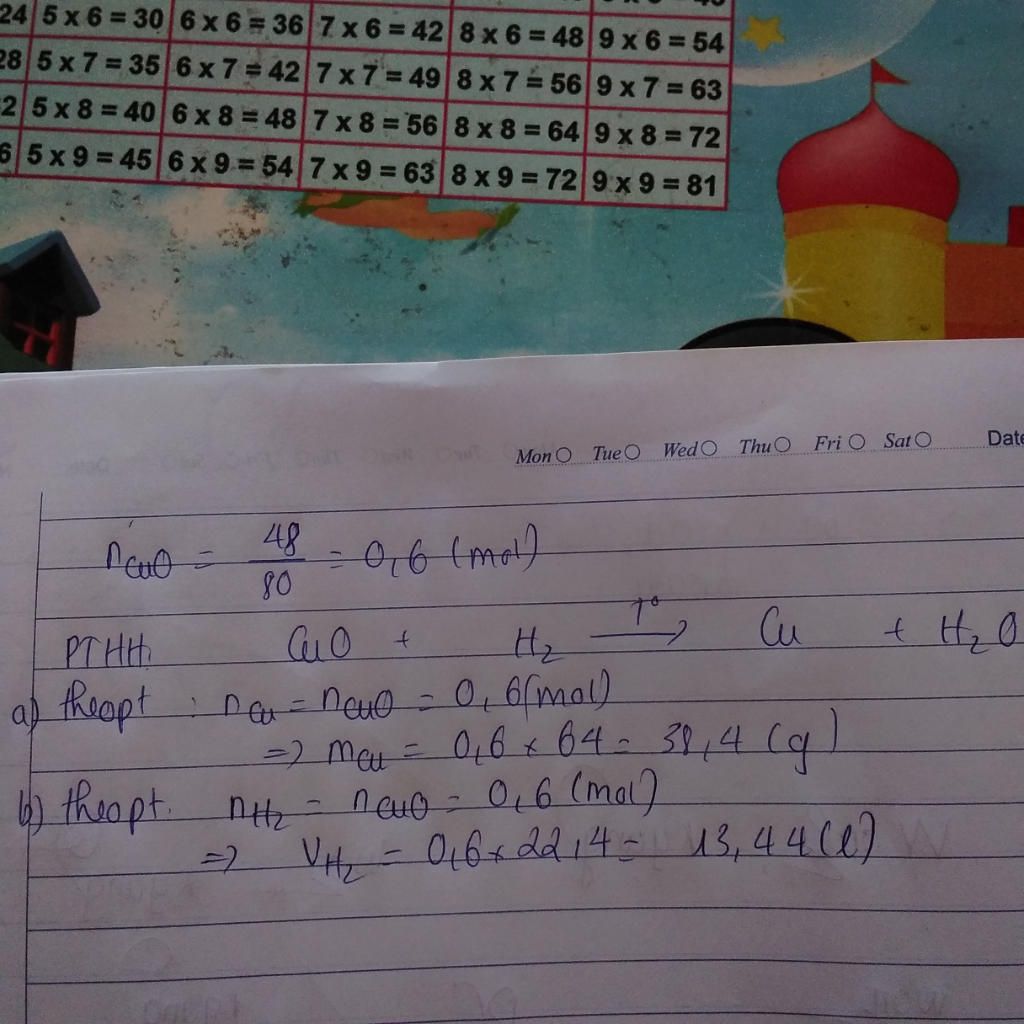 24 5 x 6 = 30 6 x 6 = 36 7 x 6 = 42 8 x 6 = 48 9 x 6 = 54
28 5 x 7 = 35 6 x 7 = 42 7 x 7 = 49 8 x 7 = 56 9 x 7 = 63
2 5 x 8 = 40 6 x 8 = 48 7 x 8 = 56 8 x 8 = 64 9 x 8 = 72
6 5 x 9 = 45 6 x 9 = 54 7 x 9 = 63 8 x 9 = 72 9 x 9 = 81
Mon Tue Wed Thu Fri Sat Date
nCuO = 48/80 = 0,6 (mol)
PTHH: CuO + H2 —T°→ Cu + H2O
a) theo pt : nCu = nCuO = 0,6 (mol)
=> mCu = 0,6 x 64 = 38,4 (g)
b) theo pt. nH2 = nCuO = 0,6 (mol)
=> VH2 = 0,6 x 22,4 = 13,44 (l)